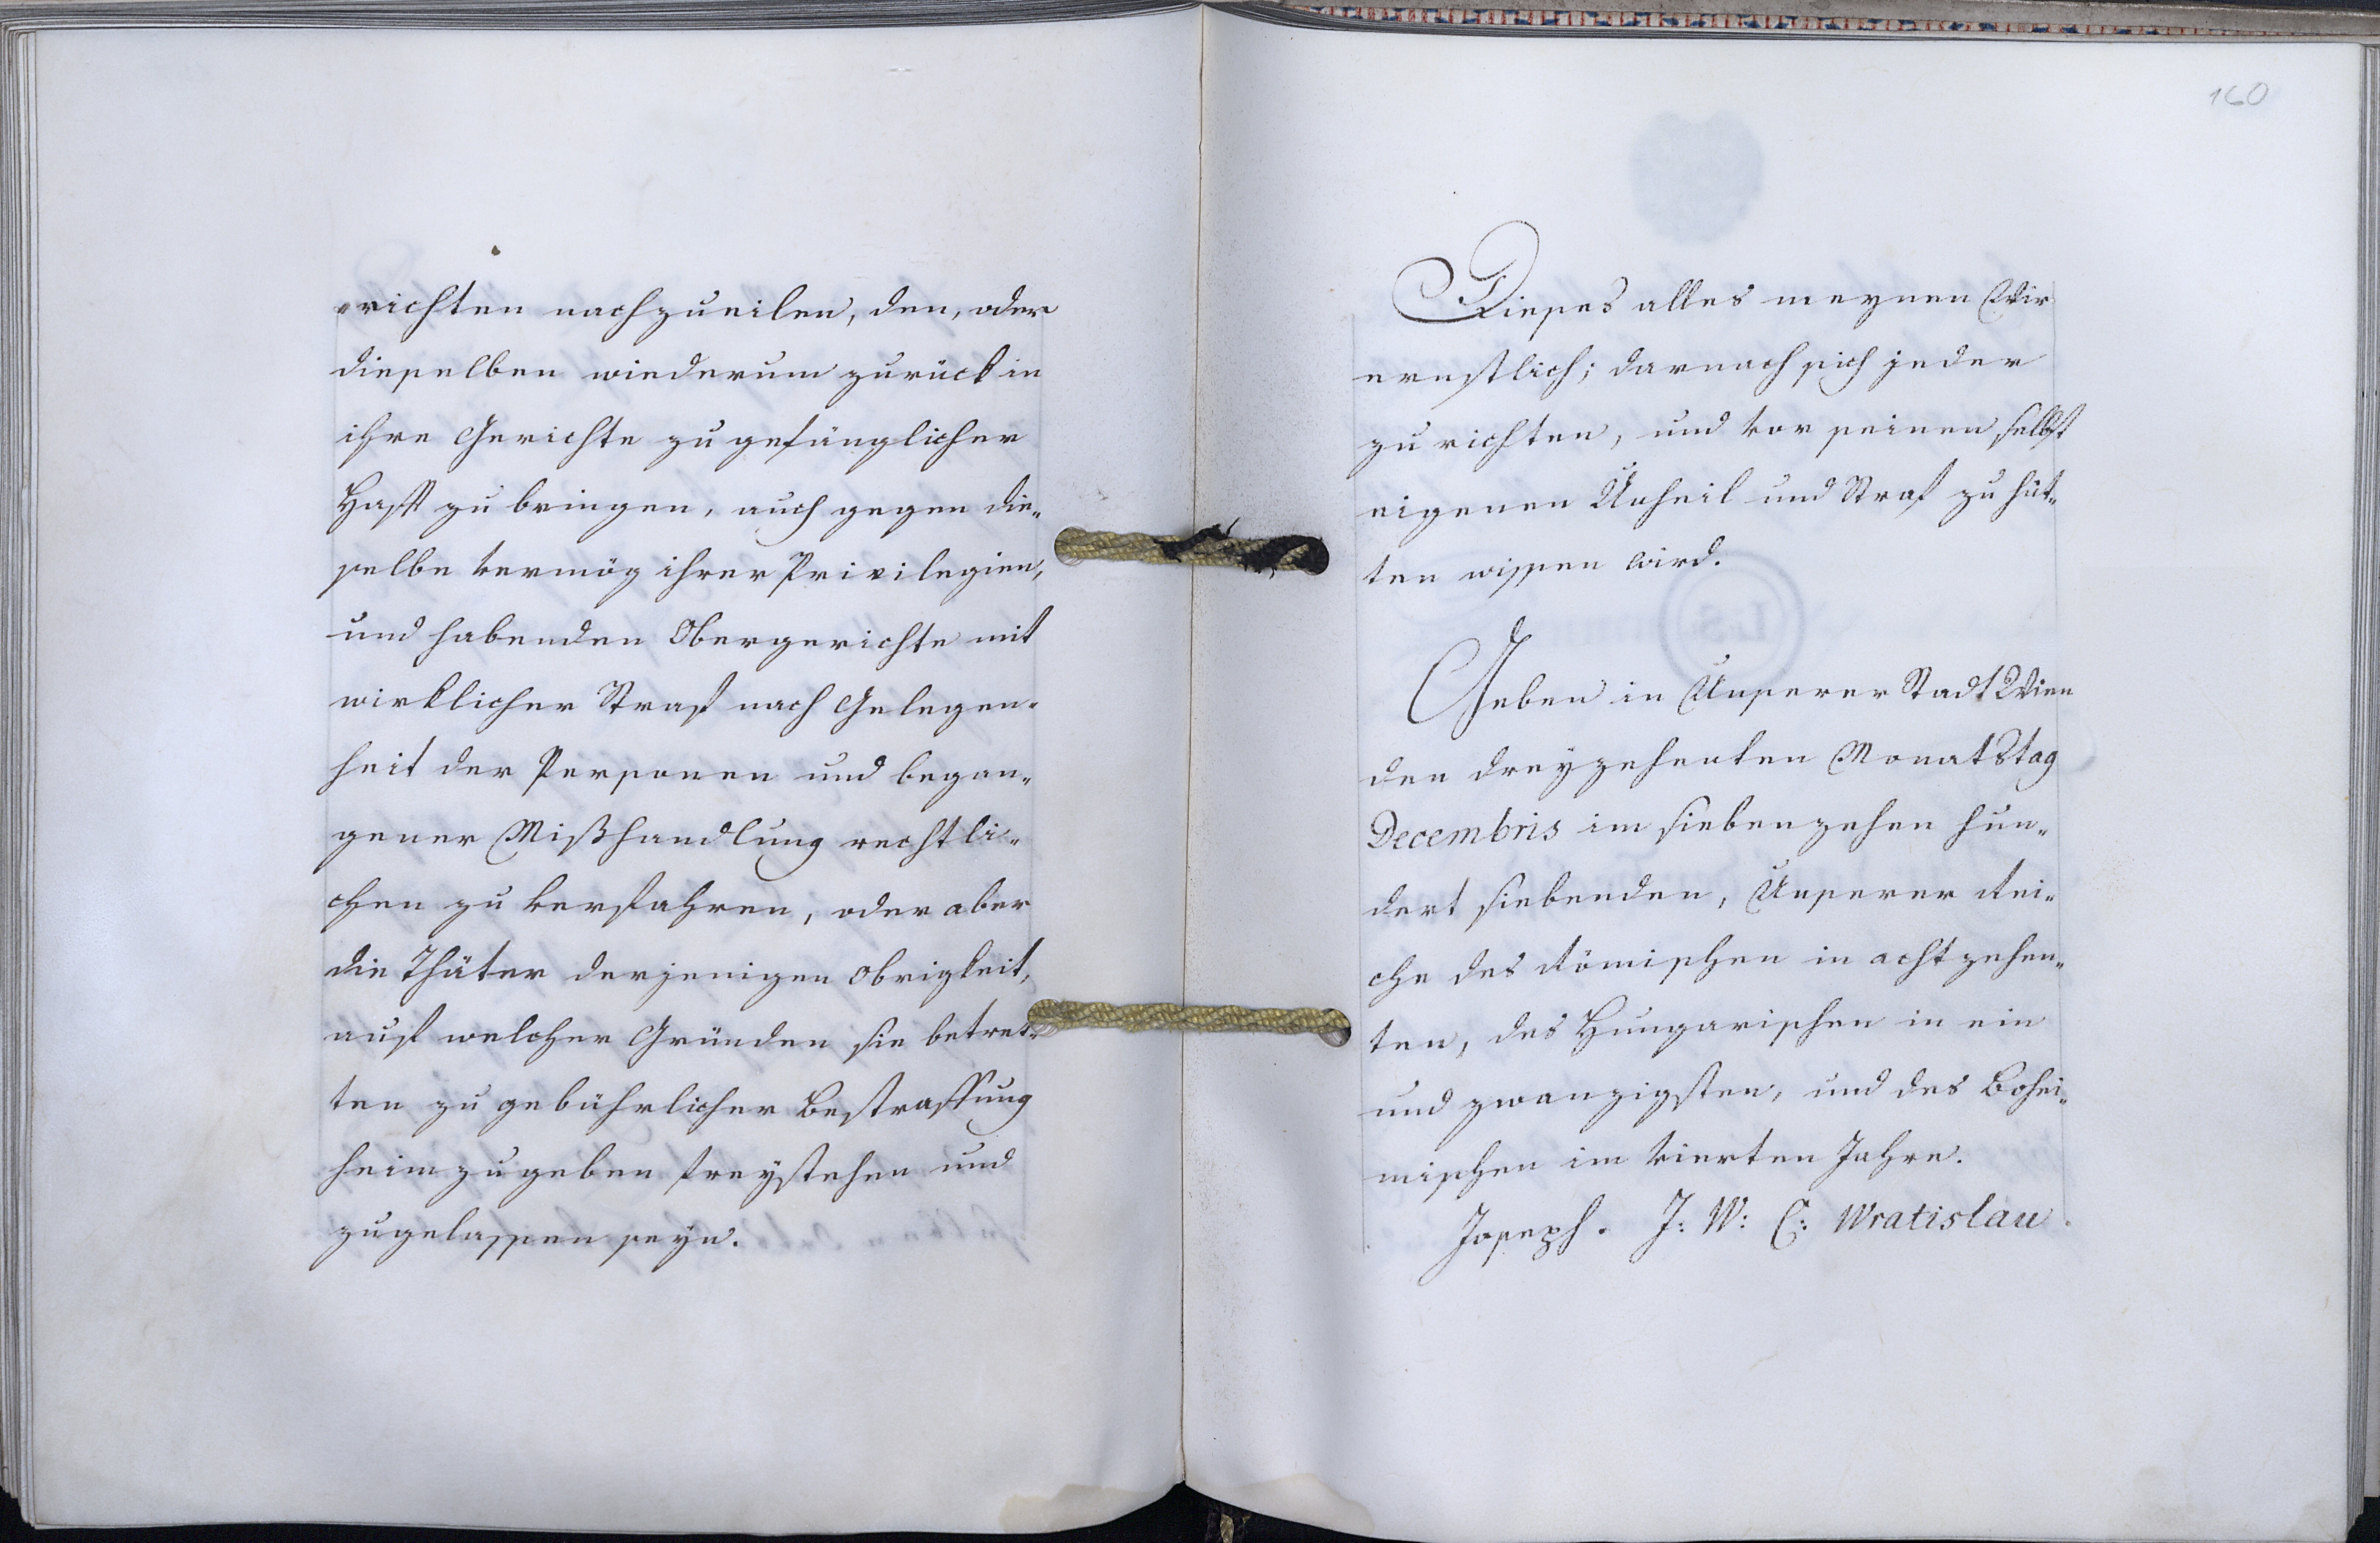 richten nachzueilen, den, oder
dieselben wiederum zurück in
ihre Gerichte zu gefänglicher
Hafft zu bringen, auch gegen die„
selbe vermög ihrer Privilegien,
und habenden Obergerichte mit
wirklicher Straf nach Gelegen„
heit der Personen und began„
gener Mißhandlung rechtli„
chen zu verfahren, oder aber
die Thäter derjenigen Obrigkeit,
auf welcher Gründen sie betret„
ten zu gebührlicher Bestraffung
heimzugeben freystehen und
zugelassen seyn.
160
Dieses alles meynen Wir
ernstlich; darnach sich jeder
zu richten, und vor seinen selbst
eigenen Unheil und Straf zu hüt„
ten wissen wird.
Geben in Unserer Stadt Wien
den dreyzehenten Monatstag
Decembris im siebenzehen hun„
dert siebenden, Unserer Rei„
che des Römischen in achtzehen„
ten, des Hungarischen in ein
und zwanzigsten, und des Bohei„
mischen im vierten Jahre.
Joseph. J: W: C: Wratislau.